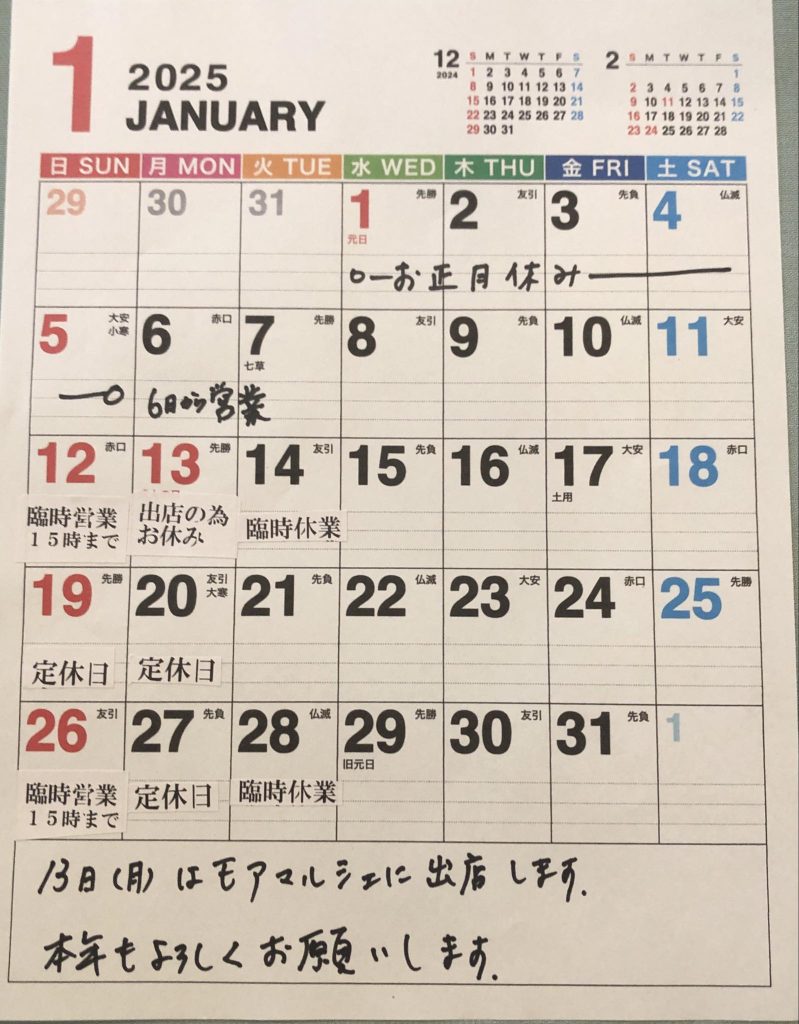 1
2025
JANUARY
12
2024
S M T W T F S
1 2 3 4 5 6 7
8 9 10 11 12 13 14
15 16 17 18 19 20 21
22 23 24 25 26 27 28
29 30 31
2
S M T W T F S
1
2 3 4 5 6 7 8
9 10 11 12 13 14 15
16 17 18 19 20 21 22
23 24 25 26 27 28
日 SUN 月 MON 火 TUE 水 WED 木 THU 金 FRI 土 SAT
29 30 31 1 先勝 2 友引 3 先負 4 仏滅
元日
お正月休み
5 大安 6 赤口 7 先勝 8 友引 9 先負 10 仏滅 11 大安
小寒
七草
6日から営業
12 赤口 13 先勝 14 友引 15 先負 16 仏滅 17 大安 18 赤口
土用
臨時営業 出店の為 臨時休業
15時まで お休み
19 先勝 20 友引 21 先負 22 仏滅 23 大安 24 赤口 25 先勝
大寒
定休日 定休日
26 友引 27 先負 28 仏滅 29 先勝 30 友引 31 先負 1
旧元日
臨時営業 定休日 臨時休業
15時まで
13日(月)はモアマルシェに出店します.
本年もよろしくお願いします.